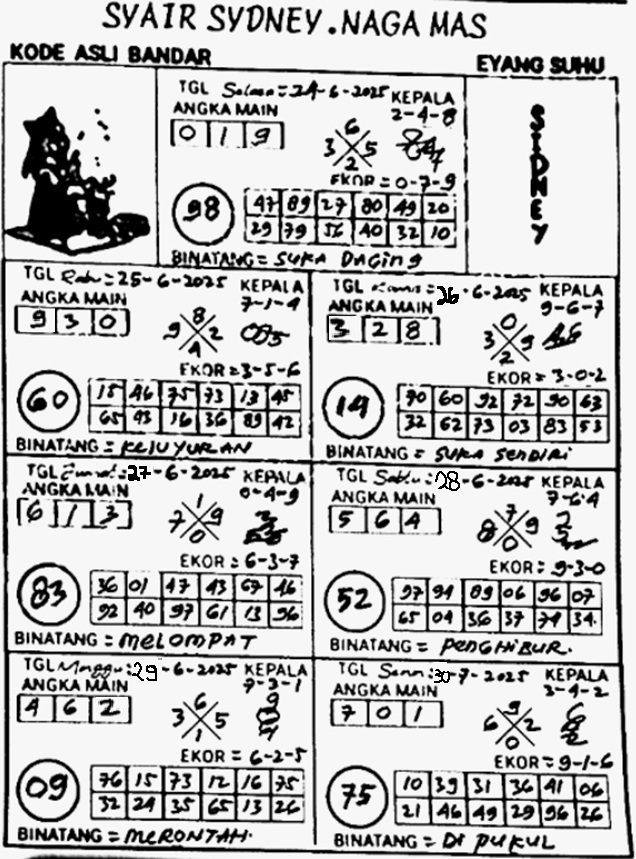 SYAIR SYDNEY.NAGA MAS
KODE ASLI BANDAR
EYANG SUHU
SIDNEY
TGL Selasa = 24-6-2025 KEPALA
2-4-8
ANGKA MAIN
0 1 9
6
3 5
2
EKOR = 0-7-9
98
47 89 27 80 49 20
29 79 56 40 32 10
BINATANG = SUKA DAGING
TGL Rabu = 25-6-2025 KEPALA
7-1-4
ANGKA MAIN
9 3 0
8
9 2
4
EKOR = 3-5-6
60
15 46 75 73 13 45
65 93 16 36 89 42
BINATANG = KELUYURAN
TGL Kamis = 26-6-2025 KEPALA
9-6-7
ANGKA MAIN
3 2 8
0
3 9
2
EKOR = 3-0-2
14
70 60 92 72 90 63
32 62 73 03 83 53
BINATANG = SUKA SENDIRI
TGL Jumat: 27-6-2025 KEPALA
0-4-9
ANGKA MAIN
6 1 3
1
7 9
0
EKOR = 6-3-7
83
36 01 47 43 67 46
92 40 97 61 13 96
BINATANG = MELOMPAT
TGL Sabtu: 28-6-2025 KEPALA
7-6-4
ANGKA MAIN
5 6 4
7
8 9
0
EKOR = 9-3-0
52
97 94 09 06 96 07
65 04 36 37 74 34
BINATANG = PENGHIBUR.
TGL Minggu: 29-6-2025 KEPALA
7-3-1
ANGKA MAIN
4 6 2
6
3 5
1
EKOR = 6-2-5
09
76 15 73 12 16 75
32 24 35 65 13 26
BINATANG = MERONTAH.
TGL Senin: 30-7-2025 KEPALA
3-4-2
ANGKA MAIN
7 0 1
9
6 2
0
EKOR = 9-1-6
75
10 39 31 36 41 06
21 46 49 29 96 26
BINATANG = DI PUKUL